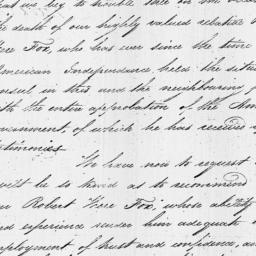 us beg to trouble thee on the
the death of our highly valued relative
Were Fox, who has ever since the time
American Independence, held the situ
onsul in this and the neighbouring
ith the entire approbation of the Am
ernment, of which he has received
stimonies.
We have now to request
to recommend
Robert Were Fox, whose ability
nd experience render him adequate
mployment of trust and confidence, a